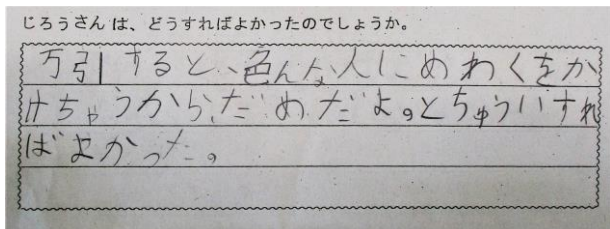 じろうさんは、どうすればよかったのでしょうか。
万引すると、色んな人にめわくをか
けちゃうから、だめだよ。とちゅういすれ
ばよかった。